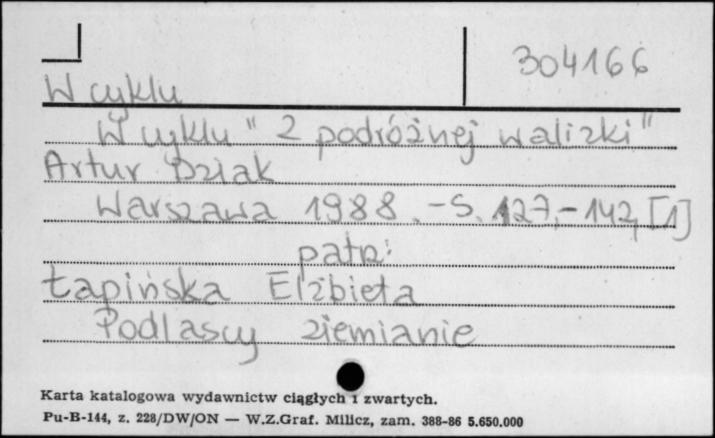 304166
W cyklu
W cyklu "Z podróżnej walizki"
Artur Dziak
Warszawa 1988. - S. 127, - 142, [1]
patrz:
Łapińska Elżbieta
Podlascy ziemianie
Karta katalogowa wydawnictw ciągłych i zwartych.
Pu-B-144, z. 228/DW/ON — W.Z.Graf. Milicz, zam. 388-86 5.650.000